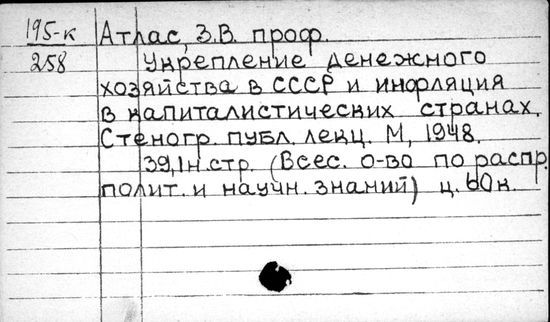 195-к Атлас, З.В. проф.
258 Укрепление денежного
хозяйства в СССР и инфляция
в капиталистических странах.
Стеногр. публ. лекц. М, 1948.
39,1н.стр. (Всес. о-во по распр.
полит. и научн. знаний) ц. 60к.